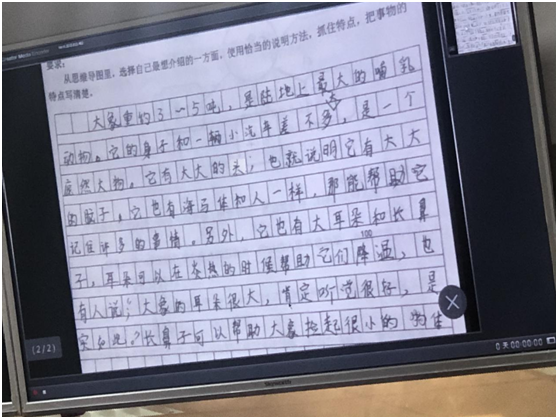 要求：
从思维导图里，选择自己最想介绍的一方面，使用恰当的说明方法，抓住特点，把事物的
特点写清楚。
大象重约3～5吨，是陆地上最大的哺乳
动物。它的身子和一辆小汽车差不多，是一个
庞然大物。它有大大的头，也就说明它有大大
的脑子，它也有海马体和人一样，那能帮助它
记住许多的事情。另外，它也有大耳朵和长鼻
子，耳朵可以在炎热的时候帮助它们降温，也
100
有人说，大象的耳朵很大，肯定听觉很好，是
实如此。长鼻子可以帮助大象捡起很小的
(2/2)
Skyworth